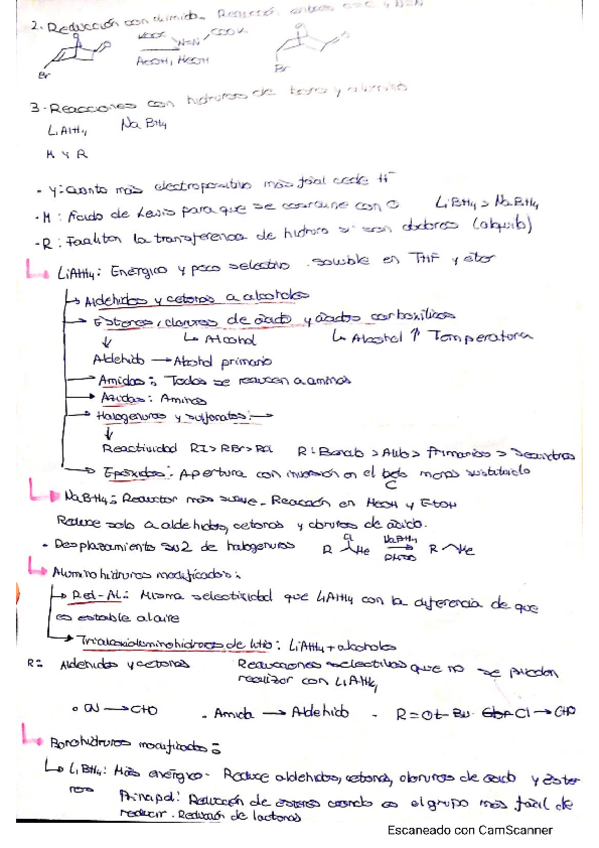 2. Reducción con diimida. Reacción entre C=C y N=N
KOOC N=N COOK
AcOH, MeOH
Br
Br
3- Reacciones con hidruros de boro y aluminio
LiAlH4 NaBH4
M Y R
- Y: Cuanto más electropositivo más fácil cede H-
- M: Ácido de Lewis para que se coordine con O LiBH4 > NaBH4
- R: Facilitan la transferencia de hidruro si son dadores (alquilo)
LiAlH4: Enérgico y poco selectivo. Soluble en THF y éter
Aldehidos y cetonas a alcoholes
Esteres, cloruros de ácido y ácidos carboxílicos
Alcohol Alcohol ↑ Temperatura
Aldehido → Alcohol primario
Amidas: Todas se reducen a aminas
Azidas: Aminas
Halogenuros y sulfonatos: →
Reactividad RI > RBr > RCl R: Bencilo > Alilo > Primarios > Secundarios
Epóxidos: Apertura con inversión en el C menos sustituido
NaBH4: Reductor más suave. Reacción en MeOH y EtOH
Reduce solo a aldehidos, cetonas y cloruros de ácido.
- Desplazamiento SN2 de halogenuros R Cl Me NaBH4 DMSO R Me
Aluminohidruros modificados:
Red-Al: Misma selectividad que LiAlH4 con la diferencia de que
es estable al aire
Trialcoxialuminohidruros de litio: LiAlH4 + alcoholes
R: Aldehidos y cetonas Reacciones selectivas que no se pueden
realizar con LiAlH4
• CN → CHO - Amida → Aldehido - R = Ot-Bu Cl → CHO
Borohidruros modificados:
LiBH4: Más enérgico. Reduce aldehidos, cetonas, cloruros de ácido y ésteres
Principal: Reducción de ésteres cuando es el grupo más fácil de
reducir. Reducción de lactonas
Escaneado con CamScanner